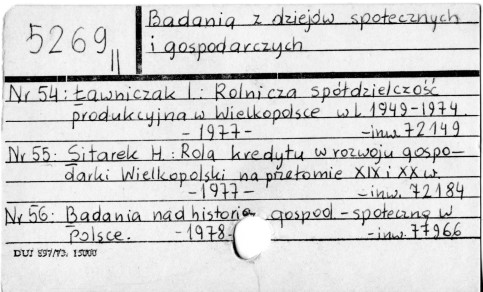 5269 II
Badania z dziejów społecznych
i gospodarczych
Nr 54: Ławniczak I.: Rolnicza spółdzielczość
produkcyjna w Wielkopolsce w l. 1949-1974.
- 1977 - -inw. 72149
Nr 55: Sitarek H.: Rola kredytu w rozwoju gospo-
darki Wielkopolski na przełomie XIX i XX w.
- 1977 - -inw. 72184
Nr 56: Badania nad historią gospod-społeczną w
Polsce. - 1978 - -inw. 77966
DUJ 897/73. 15000